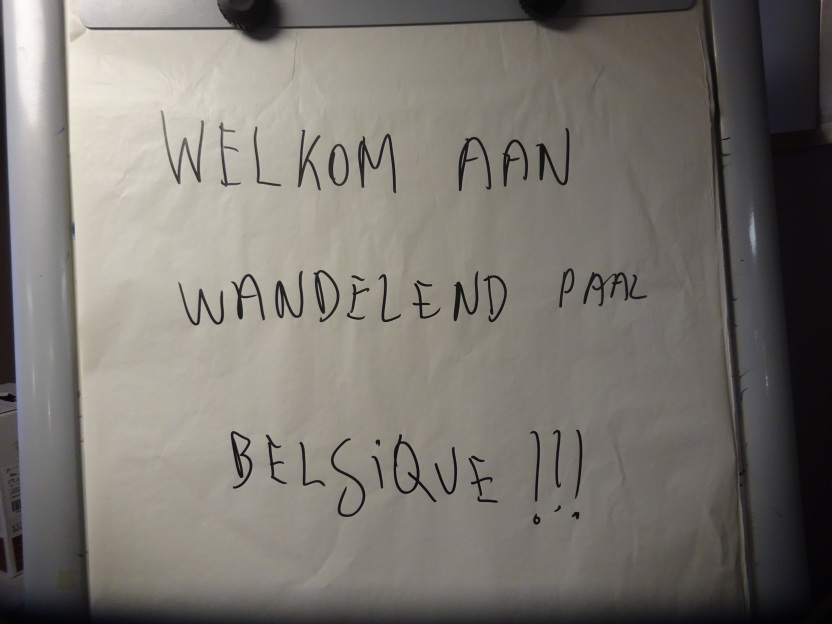 WELKOM AAN
WANDELEND PAAL
BELSiQUE !!!